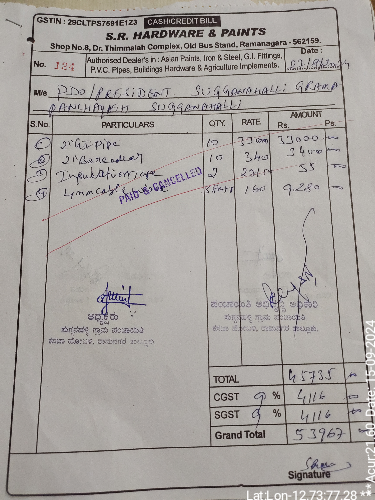 GSTIN : 29CLTPS7581E123 CASH/CREDIT BILL
S.R. HARDWARE & PAINTS
Shop No.8, Dr. Thimmaiah Complex, Old Bus Stand, Ramanagara - 562159.
No. 184 Authorised Dealer's in : Asian Paints, Iron & Steel, G.I. Fittings, P.V.C. Pipes, Buildings Hardware & Agriculture Implements. Date :
M/s PDO/PRESIDENT SUGGANAHALLI GRAMA
PANCHAYATH SUGGANAHALLI
S.No. PARTICULARS QTY. RATE AMOUNT Rs. Ps.
① 2" GI Pipe 10 3300 33000
② 10 340 3400
③ 2
④ 160 9280
PAID & CANCELLED
ಅಧ್ಯಕ್ಷರು
ಸುಗ್ಗನಹಳ್ಳಿ ಗ್ರಾಮ ಪಂಚಾಯಿತಿ
ಪಂಚಾಯಿತಿ ಅಭಿವೃದ್ಧಿ ಅಧಿಕಾರಿ
ಸುಗ್ಗನಹಳ್ಳಿ ಗ್ರಾಮ ಪಂಚಾಯಿತಿ
TOTAL 45735
CGST 9 % 4116
SGST 9 % 4116
Grand Total 53967
Signature
Lat:Lon-12.73:77.28 ** Acur:21.60 Date-15-09-2024